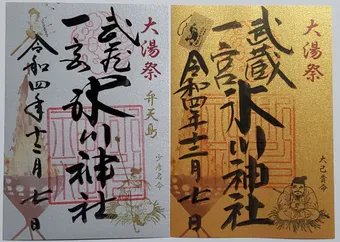 大湯祭
武蔵
一宮
氷川神社
令和四年十二月七日
弁天島
少彦名命
大湯祭
武蔵
一宮
氷川神社
令和四年十二月七日
大己貴命